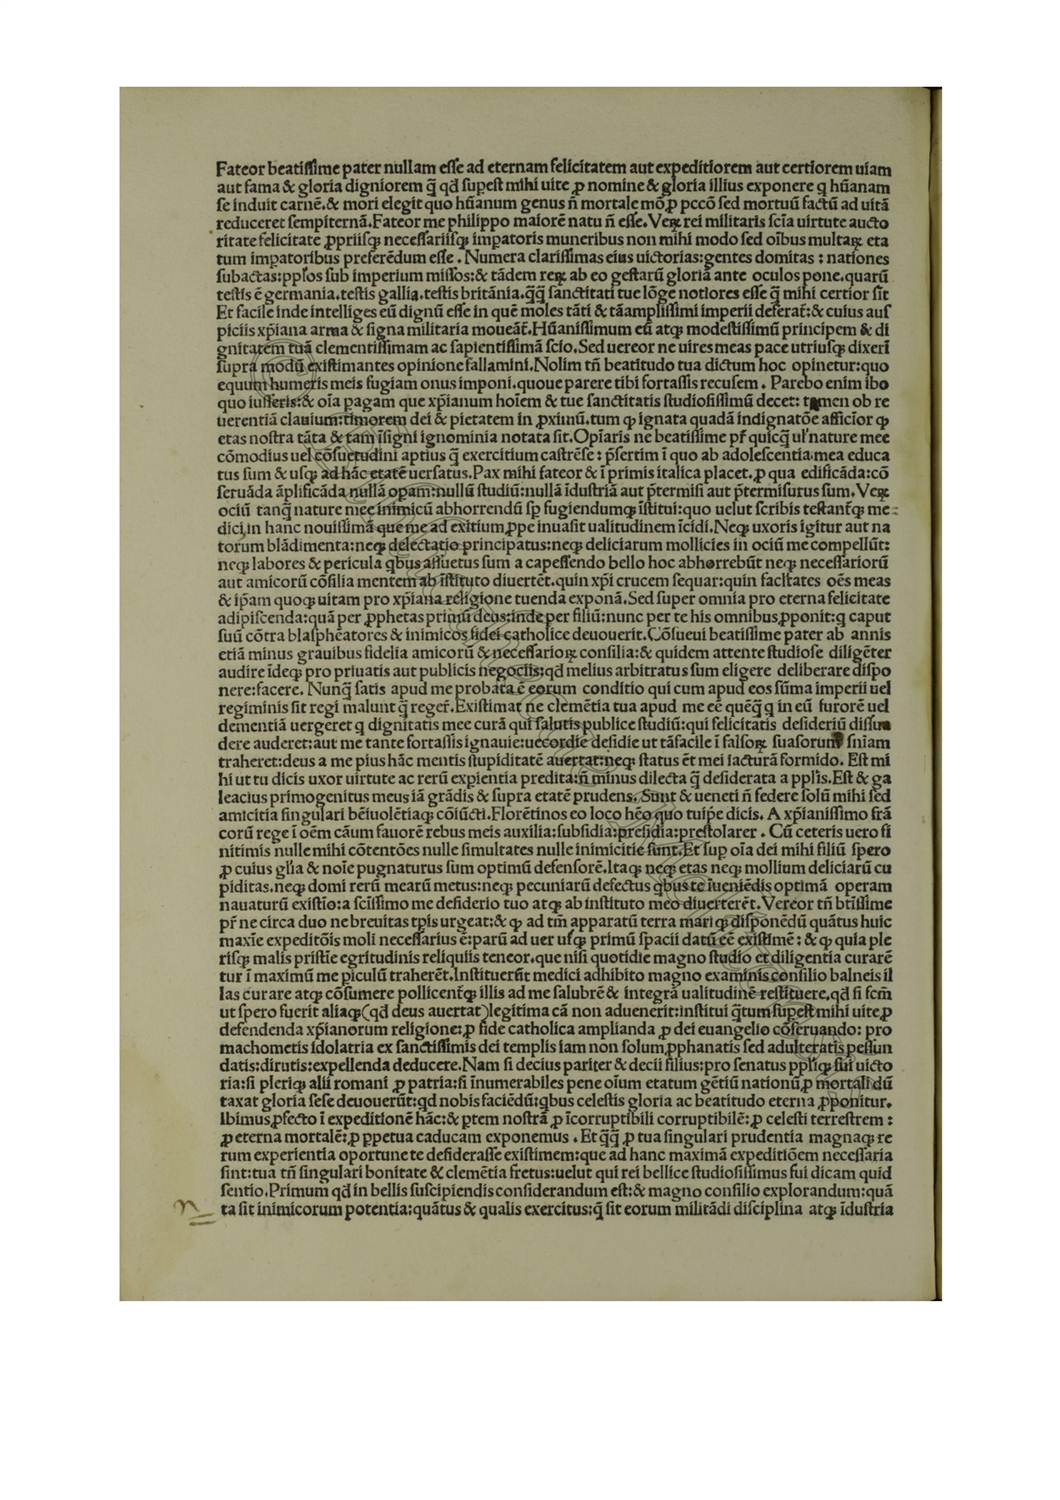 Fateor beatissime pater nullam esse ad eternam felicitatem aut expeditiorem aut certiorem uiam
aut fama & gloria digniorem q̄ qd̄ supest mihi uite ꝓ nomine & gloria illius exponere q hūanam
se induit carnē.& mori elegit quo hūanum genus n̄ mortale mō ꝓ pccō sed mortuū factū ad uitā
reduceret sempiternā.Fateor me philippo maiorē natu n̄ esse.Veꝝ rei militaris scīa uirtute aucto
ritate felicitate ꝓpriisqꝫ necessariisqꝫ impatoris muneribus non mihi modo sed oībus multaꝝ eta
tum impatoribus preferēdum esse . Numera clarissimas eius uictorias:gentes domitas : nationes
subactas:pplos sub imperium missos:& tādem reꝝ ab eo gestarū gloriā ante oculos pone.quarū
testis ē germania.testis gallia.testis britānia.q̄q̄ sanctitati tue lōge notiores esse q̄ mihi certior sit
Et facile inde intelliges eū dignū esse in quē moles tāti & tāamplissimi imperii deferat̄:& cuius aus
piciis xp̄iana arma & signa militaria moueāt̄.Hūanissimum eū atqꝫ modestissimū principem & di
gnitatem tuā clementissimam ac sapientissimā scio.Sed uereor ne uires meas pace utriusqꝫ dixerī
supra modū existimantes opinione fallamini.Nolim tn̄ beatitudo tua dictum hoc opinetur:quo
equum humeris meis fugiam onus imponi.quoue parere tibi fortassis recusem . Parebo enim ibo
quo iusseris:& oīa pagam que xp̄ianum hoīem & tue sanctitatis studiosissimū decet: tamen ob re
uerentiā clauium:timorem dei & pietatem in ꝓximū.tum ꝙ ignata quadā indignatōe afficior ꝙ
etas nostra tāta & tam īsigni ignominia notata sit.Opīaris ne beatissime pr̄ quicq̄ ul' nature mee
cōmodius uel cōsuetudini aptius q̄ exercitium castrēse : p̄sertim ī quo ab adolescentia.mea educa
tus sum & usqꝫ ad hāc etatē uersatus.Pax mihi fateor & ī primis italica placet.ꝓ qua edificāda:cō
seruāda āplificāda nullā opam:nullū studiū:nullā īdustriā aut p̄termisi aut p̄termisurus sum.Veꝝ
ociū tanq̄ nature mee inimicū abhorrendū sp̄ fugiendumqꝫ īstitui:quo uelut scribis testant̄qꝫ me
dici,in hanc nouissimā que me ad exitium ꝓpe inuasit ualitudinem īcidi.Neqꝫ uxoris igitur aut na
torum blādimenta:neqꝫ delectatio principatus:neqꝫ deliciarum mollicies in ociū me compellūt:
neqꝫ labores & pericula qbus assuetus sum a capessendo bello hoc abhorrebūt neqꝫ necessariorū
aut amicorū cōsilia mentem ab īstituto diuertēt.quin xp̄i crucem sequar:quin facltates oēs meas
& ip̄am quoqꝫ uitam pro xp̄iana religione tuenda exponā.Sed super omnia pro eterna felicitate
adipiscenda:quā per ꝓphetas primū deus:inde per filiū:nunc per te his omnibus ꝓponit:q caput
suū cōtra blasphēatores & inimicos fidei catholice deuouerit.Cōsueui beatissime pater ab annis
etiā minus grauibus fidelia amicorū & necessarioꝝ consilia:& quidem attente studiose diligēter
audire īdeqꝫ pro priuatis aut publicis negociis:qd̄ melius arbitratus sum eligere deliberare dispo
nere:facere. Nunq̄ satis apud me probata ē eorum conditio qui cum apud eos sūma imperii uel
regiminis sit regi malunt q̄ reger̄.Existimat ne clemētia tua apud me eē quēq̄ q in eū furorē uel
dementiā uergeret q dignitatis mee curā qui salutis publice studiū:qui felicitatis desideriū dissua
dere auderet:aut me tante fortassis ignauie:uecordie desidie ut tāfacile ī falsoꝝ suasorum sn̄iam
traheret:deus a me pius hāc mentis stupiditatē auertat:neqꝫ status ēt mei iacturā formido. Est mi
hi ut tu dicis uxor uirtute ac rerū expientia predita:n̄ minus dilecta q̄ desiderata a ppl'is.Est & ga
leacius primogenitus meus iā grādis & supra etatē prudens.Sunt & ueneti n̄ federe solū mihi sed
amicitia singulari bēiuolētiaqꝫ cōiūcti.Florētinos eo loco hēo quo tuipe dicis. A xp̄ianissimo frā
corū rege ī oēm cāum fauorē rebus meis auxilia:subsidia:presidia:prestolarer . Cū ceteris uero fi
nitimis nulle mihi cōtentōes nulle simultates nulle inimicitie sunt.Et sup oīa dei mihi filiū spero
ꝓ cuius gl'ia & noīe pugnaturus sum optimū defensorē.Itaqꝫ neqꝫ etas neqꝫ mollium deliciarū cu
piditas.neqꝫ domi rerū mearū metus:neqꝫ pecuniarū defectus qbus te īueniēdis optimā operam
nauaturū existio:a scīssimo me desiderio tuo atqꝫ ab instituto meo diuerterēt.Vereor tn̄ btīssime
pr̄ ne circa duo ne breuitas tpīs urgeat:& ꝙ ad tm̄ apparatū terra mari qꝫ disponēdū quātus huic
maxīe expeditōis moli necessarius ē:parū ad uer usqꝫ primū spacii datū eē existimē : & ꝙ quia ple
risqꝫ malis pristīe egritudinis reliquiis teneor.que nisi quotidie magno studio et diligentia curarē
tur ī maximū me piculū traherēt.Instituerūt medici adhibito magno examinis consilio balneis il
las curare atqꝫ cōsumere pollicent̄qꝫ illis ad me salubrē & integrā ualitudinē restituere.qd̄ si fcm̄
ut spero fuerit aliaqꝫ(qd̄ deus auertat)legitima cā non aduenerit:institui q̄tum supest mihi uite ꝓ
defendenda xp̄ianorum religione:ꝓ fide catholica amplianda ꝓ dei euangelio cōseruando: pro
machometis idolatria ex sanctissimis dei templis iam non solum ꝓphanatis sed adulteratis pessun
datis:dirutis:expellenda deducere.Nam si decius pariter & decii filius:pro senatus ppl'iqꝫ sui uicto
ria:si pleriqꝫ alii romani ꝓ patria:si īnumerabiles pene oīum etatum gētiū nationū ꝓ mortali dū
taxat gloria sese deuouerūt:qd nobis faciēdū:qbus celestis gloria ac beatitudo eterna ꝓponitur.
Ibimus ꝓfecto ī expeditionē hāc:& ptem nostrā ꝓ īcorruptibili corruptibilē:ꝓ celesti terrestrem :
ꝓ eterna mortalē:ꝓ ppetua caducam exponemus . Et q̄q̄ ꝓ tua singulari prudentia magnaqꝫ re
rum experientia oportune te desiderasse existimem:que ad hanc maximā expeditiōem necessaria
sint:tua tn̄ singulari bonitate & clemētia fretus:uelut qui rei bellice studiosissimus fui dicam quid
sentio.Primum qd̄ in bellis suscipiendis considerandum est:& magno consilio explorandum:quā
ta sit inimicorum potentia:quātus & qualis exercitus:q̄ sit eorum militādi disciplina atqꝫ īdustria